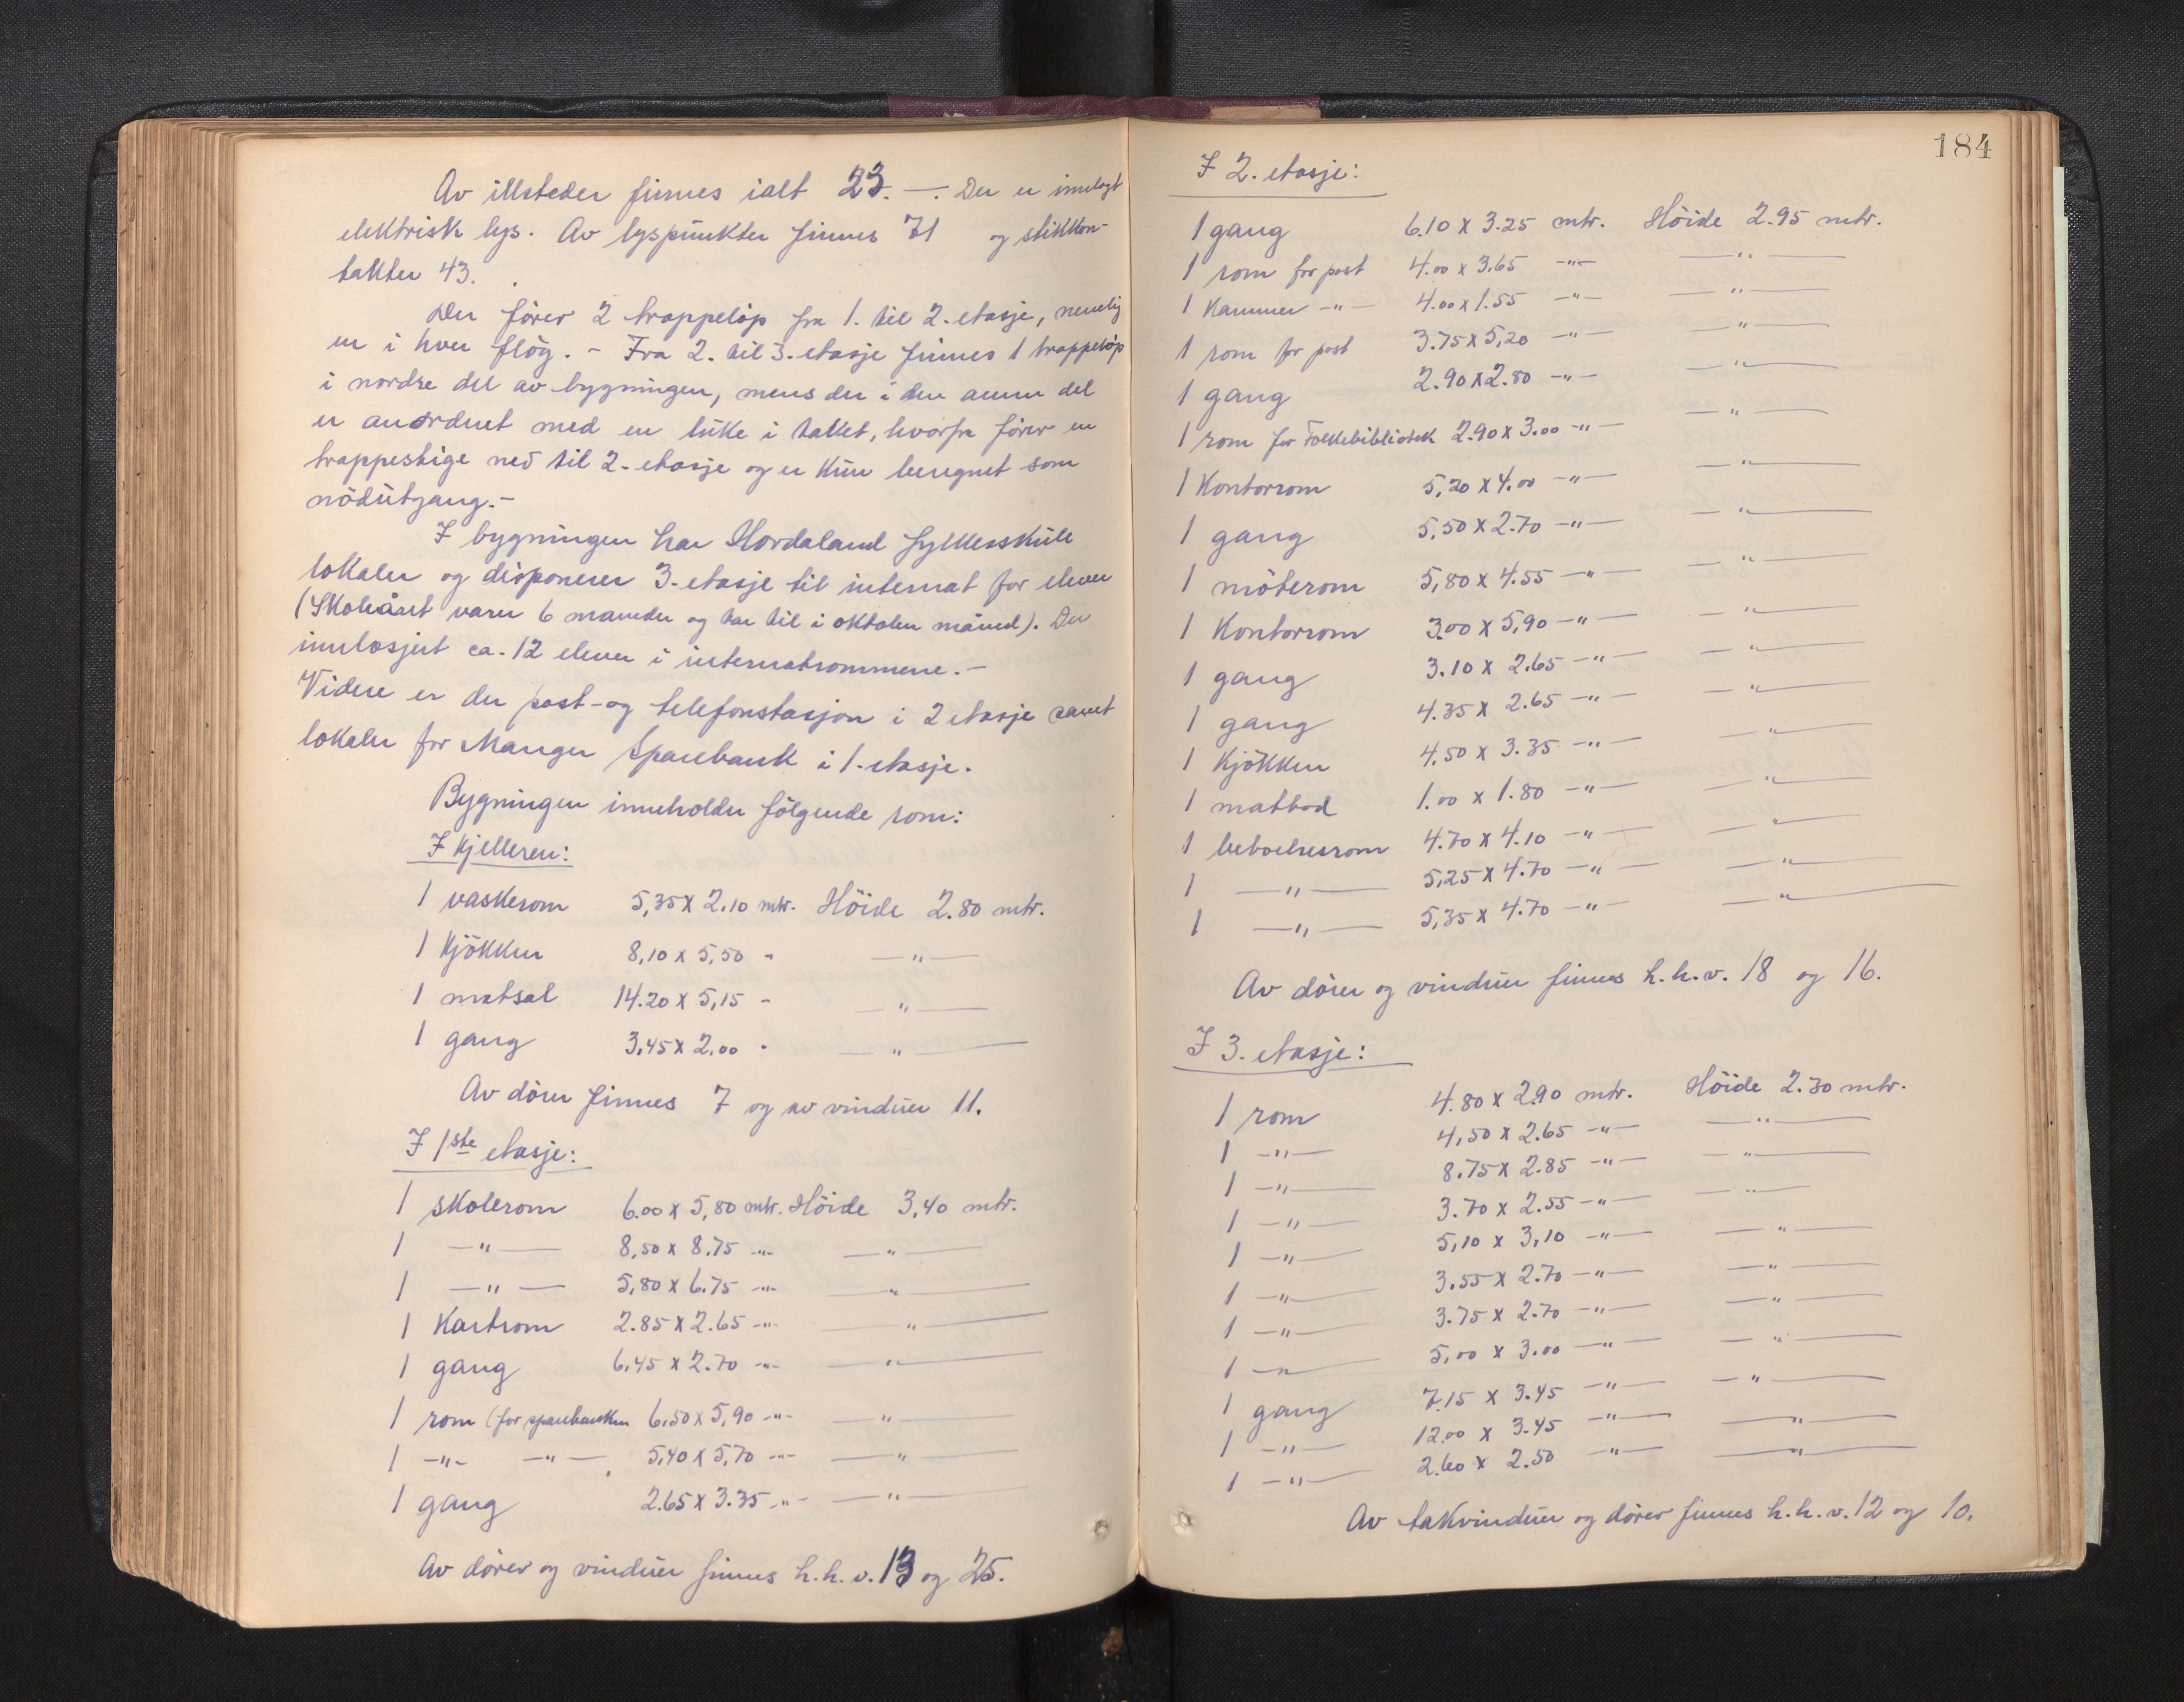 Av illsteder finnes ialt 23. —. Der er innlagt
elektrisk lys. Av lyspunkter finnes 71 og stikkon-
takter 43.
Der fører 2 trappeløp fra 1. til 2. etasje, nemlig
en i hver fløy. - Fra 2. til 3. etasje finnes 1 trappeløp
i nordre del av bygningen, mens der i den annen del
er anordnet med en luke i taket, hvorfra fører en
trappestige ned til 2. etasje og er kun beregnet som
nödutgang.-
I bygningen har Hordaland fylkesskule
lokaler og disponerer 3. etasje til internat for elever
(Skoleåret varer 6 maneder og tar til i oktober måned). Der
innlosjert ca. 12 elever i internatrommene. -
Videre er der post- og telefonstasjon i 2 etasje samt
lokaler for Manger Sparebank i 1. etasje.
Bygningen inneholder følgende rom:
I Kjelleren:
1 vaskerom 5,35 x 2.10 mtr. Höide 2.80 mtr.
1 Kjökken 8,10 x 5,50 - —"—
1 matsal 14.20 x 5,15 - —"—
1 gang 3,45 x 2,00 - —"—
Av dører finnes 7 og av vinduer 11.
I 1ste etasje:
1 skolerom 6.00 x 5,80 mtr. Höide 3,40 mtr.
1 —"— 8,50 x 8.75 -"- —"—
1 —"— 5,80 x 6.75 -"- —"—
1 Kartrom 2.85 x 2.65 -"- —"—
1 gang 6,45 x 2.70 -"- —"—
1 rom (for sparebanken 6,50 x 5,90 -"- —"—
1 -"- —"— 5,40 x 5,70 -"- —"—
1 gang 2.65 x 3.35 -"- —"—
Av dører og vinduer finnes h.h.v. 13 og 25.
184
I 2. etasje:
1 gang 6.10 x 3.25 mtr. Höide 2.95 mtr.
1 rom for post 4.00 x 3.65 —"— —"—
1 Kammer -"- 4.00 x 1.55 —"— —"—
1 rom for post 3.75 x 5,20 —"— —"—
1 gang 2.90 x 2.80 —"— —"—
1 rom for Folkebibliotek 2.90 x 3.00 —"— —"—
1 Kontorrom 5,20 x 4.00 —"— —"—
1 gang 5,50 x 2.70 —"— —"—
1 möterom 5,80 x 4.55 —"— —"—
1 Kontorrom 3.00 x 5,90 —"— —"—
1 gang 3.10 x 2.65 —"— —"—
1 gang 4.35 x 2.65 —"— —"—
1 Kjökken 4.50 x 3.35 —"— —"—
1 matbod 1.00 x 1.80 —"— —"—
1 beboelsesrom 4.70 x 4.10 —"— —"—
1 —"— 5,25 x 4.70 —"— —"—
1 —"— 5,35 x 4.70 —"— —"—
Av dører og vinduer finnes h.h.v. 18 og 16.
I 3. etasje:
1 rom 4.80 x 2.90 mtr. Höide 2.30 mtr.
1 —"— 4,50 x 2.65 —"— —"—
1 —"— 8.75 x 2.85 —"— —"—
1 —"— 3.70 x 2.55 —"— —"—
1 —"— 5,10 x 3,10 —"— —"—
1 —"— 3.55 x 2.70 —"— —"—
1 —"— 3.75 x 2.70 —"— —"—
1 —"— 5,00 x 3.00 —"— —"—
1 gang 7.15 x 3.45 —"— —"—
1 —"— 12.00 x 3.45 —"— —"—
1 —"— 2.60 x 2.50 —"— —"—
Av takvinduer og dører finnes h.h.v. 12 og 10.